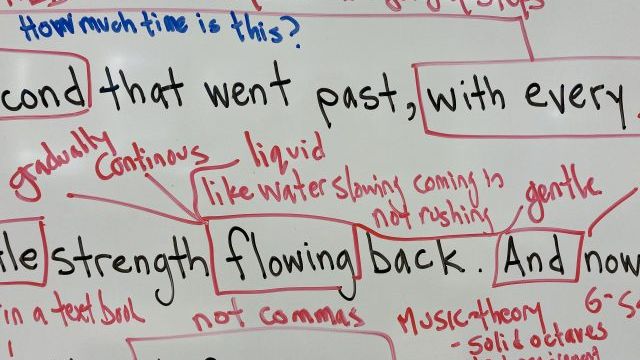 How much time is this?
cond that went past, with every
gradually continous liquid
like water slowing coming in
not rushing
gentle
strength flowing back. And now
in a text book
not commas
Music-theory
- solid octaves